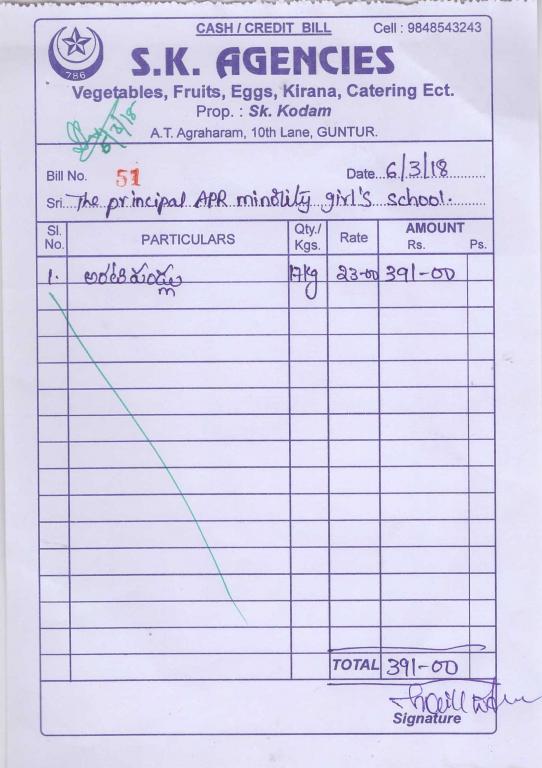 CASH / CREDIT BILL Cell : 9848543243
786
S.K. AGENCIES
Vegetables, Fruits, Eggs, Kirana, Catering Ect.
Prop. : Sk. Kodam
A.T. Agraharam, 10th Lane, GUNTUR.
6/3/18
Bill No. 51 Date 6/3/18
Sri The principal APR minority girl's school.
Sl. No. PARTICULARS Qty./ Kgs. Rate AMOUNT Rs. Ps.
1. అరటిపండ్లు 17kg 23-00 391-00
TOTAL 391-00
Signature